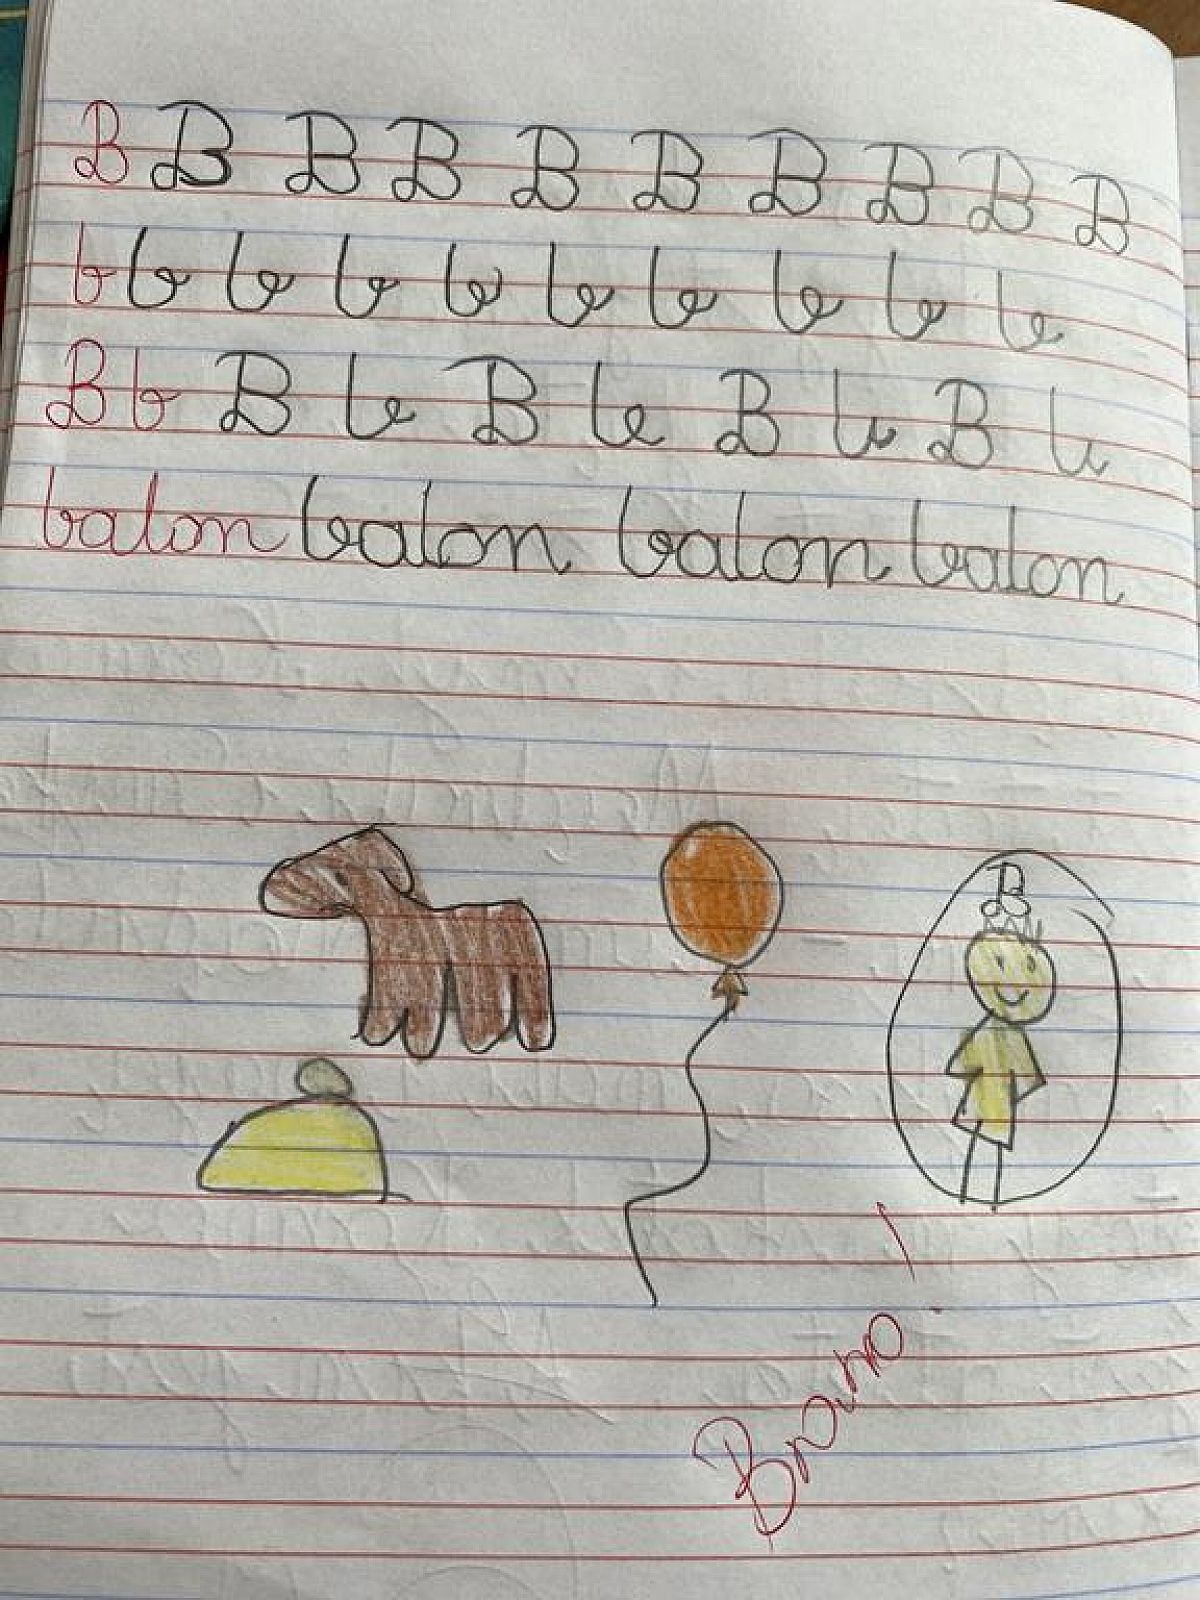 B B B B B B B B B B
b b b b b b b b b b
B b B b B b B b B b
balon balon balon balon
B
Bravo!